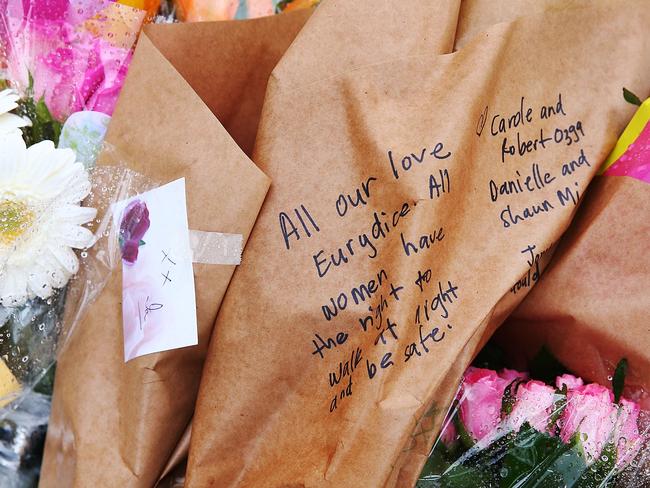 All our love
Eurydice. All
women have
the right to
walk at night
and be safe.
♡ Carole and
Robert Ozga
Danielle and
Shaun Mi
x x